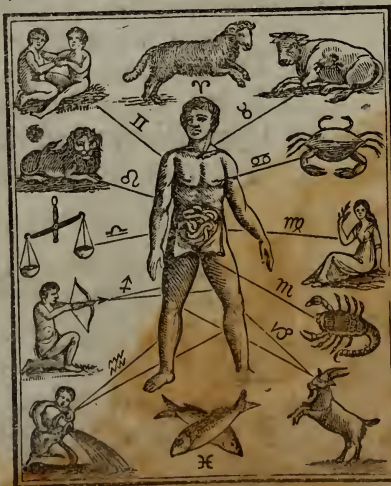 ♈
♊ ♉
♋
♌
♎ ♍
♐ ♏
♑
♒
♓